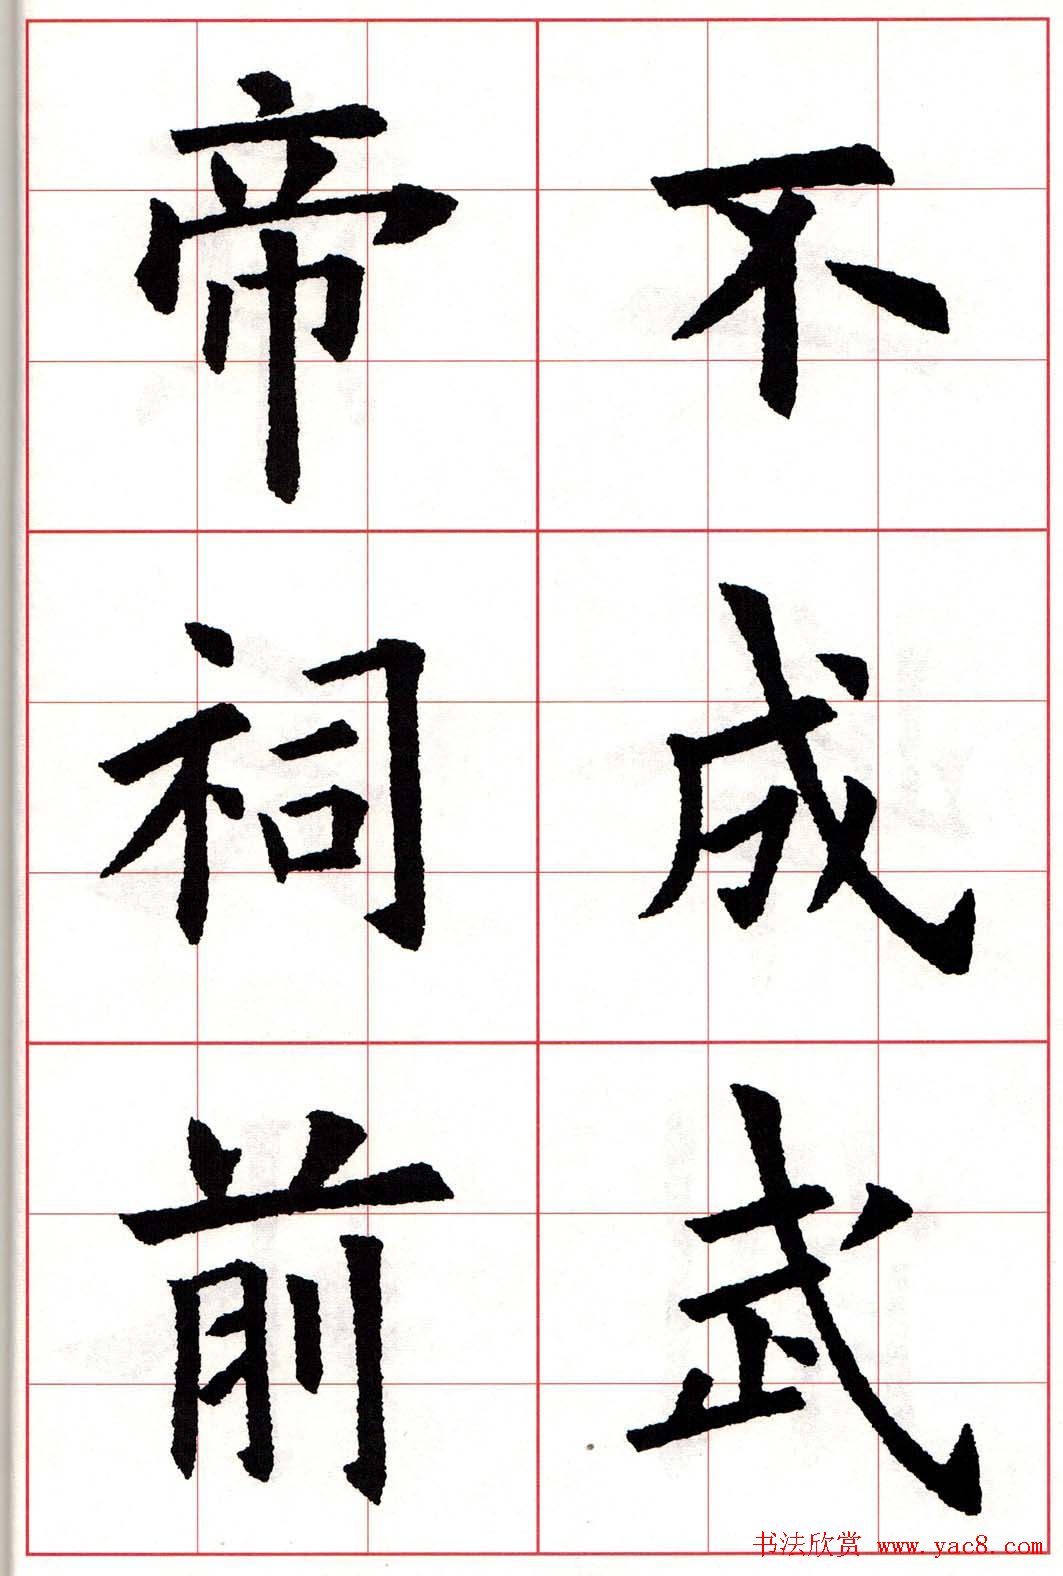 不成武
帝祠前
书法欣赏 www.yac8.com